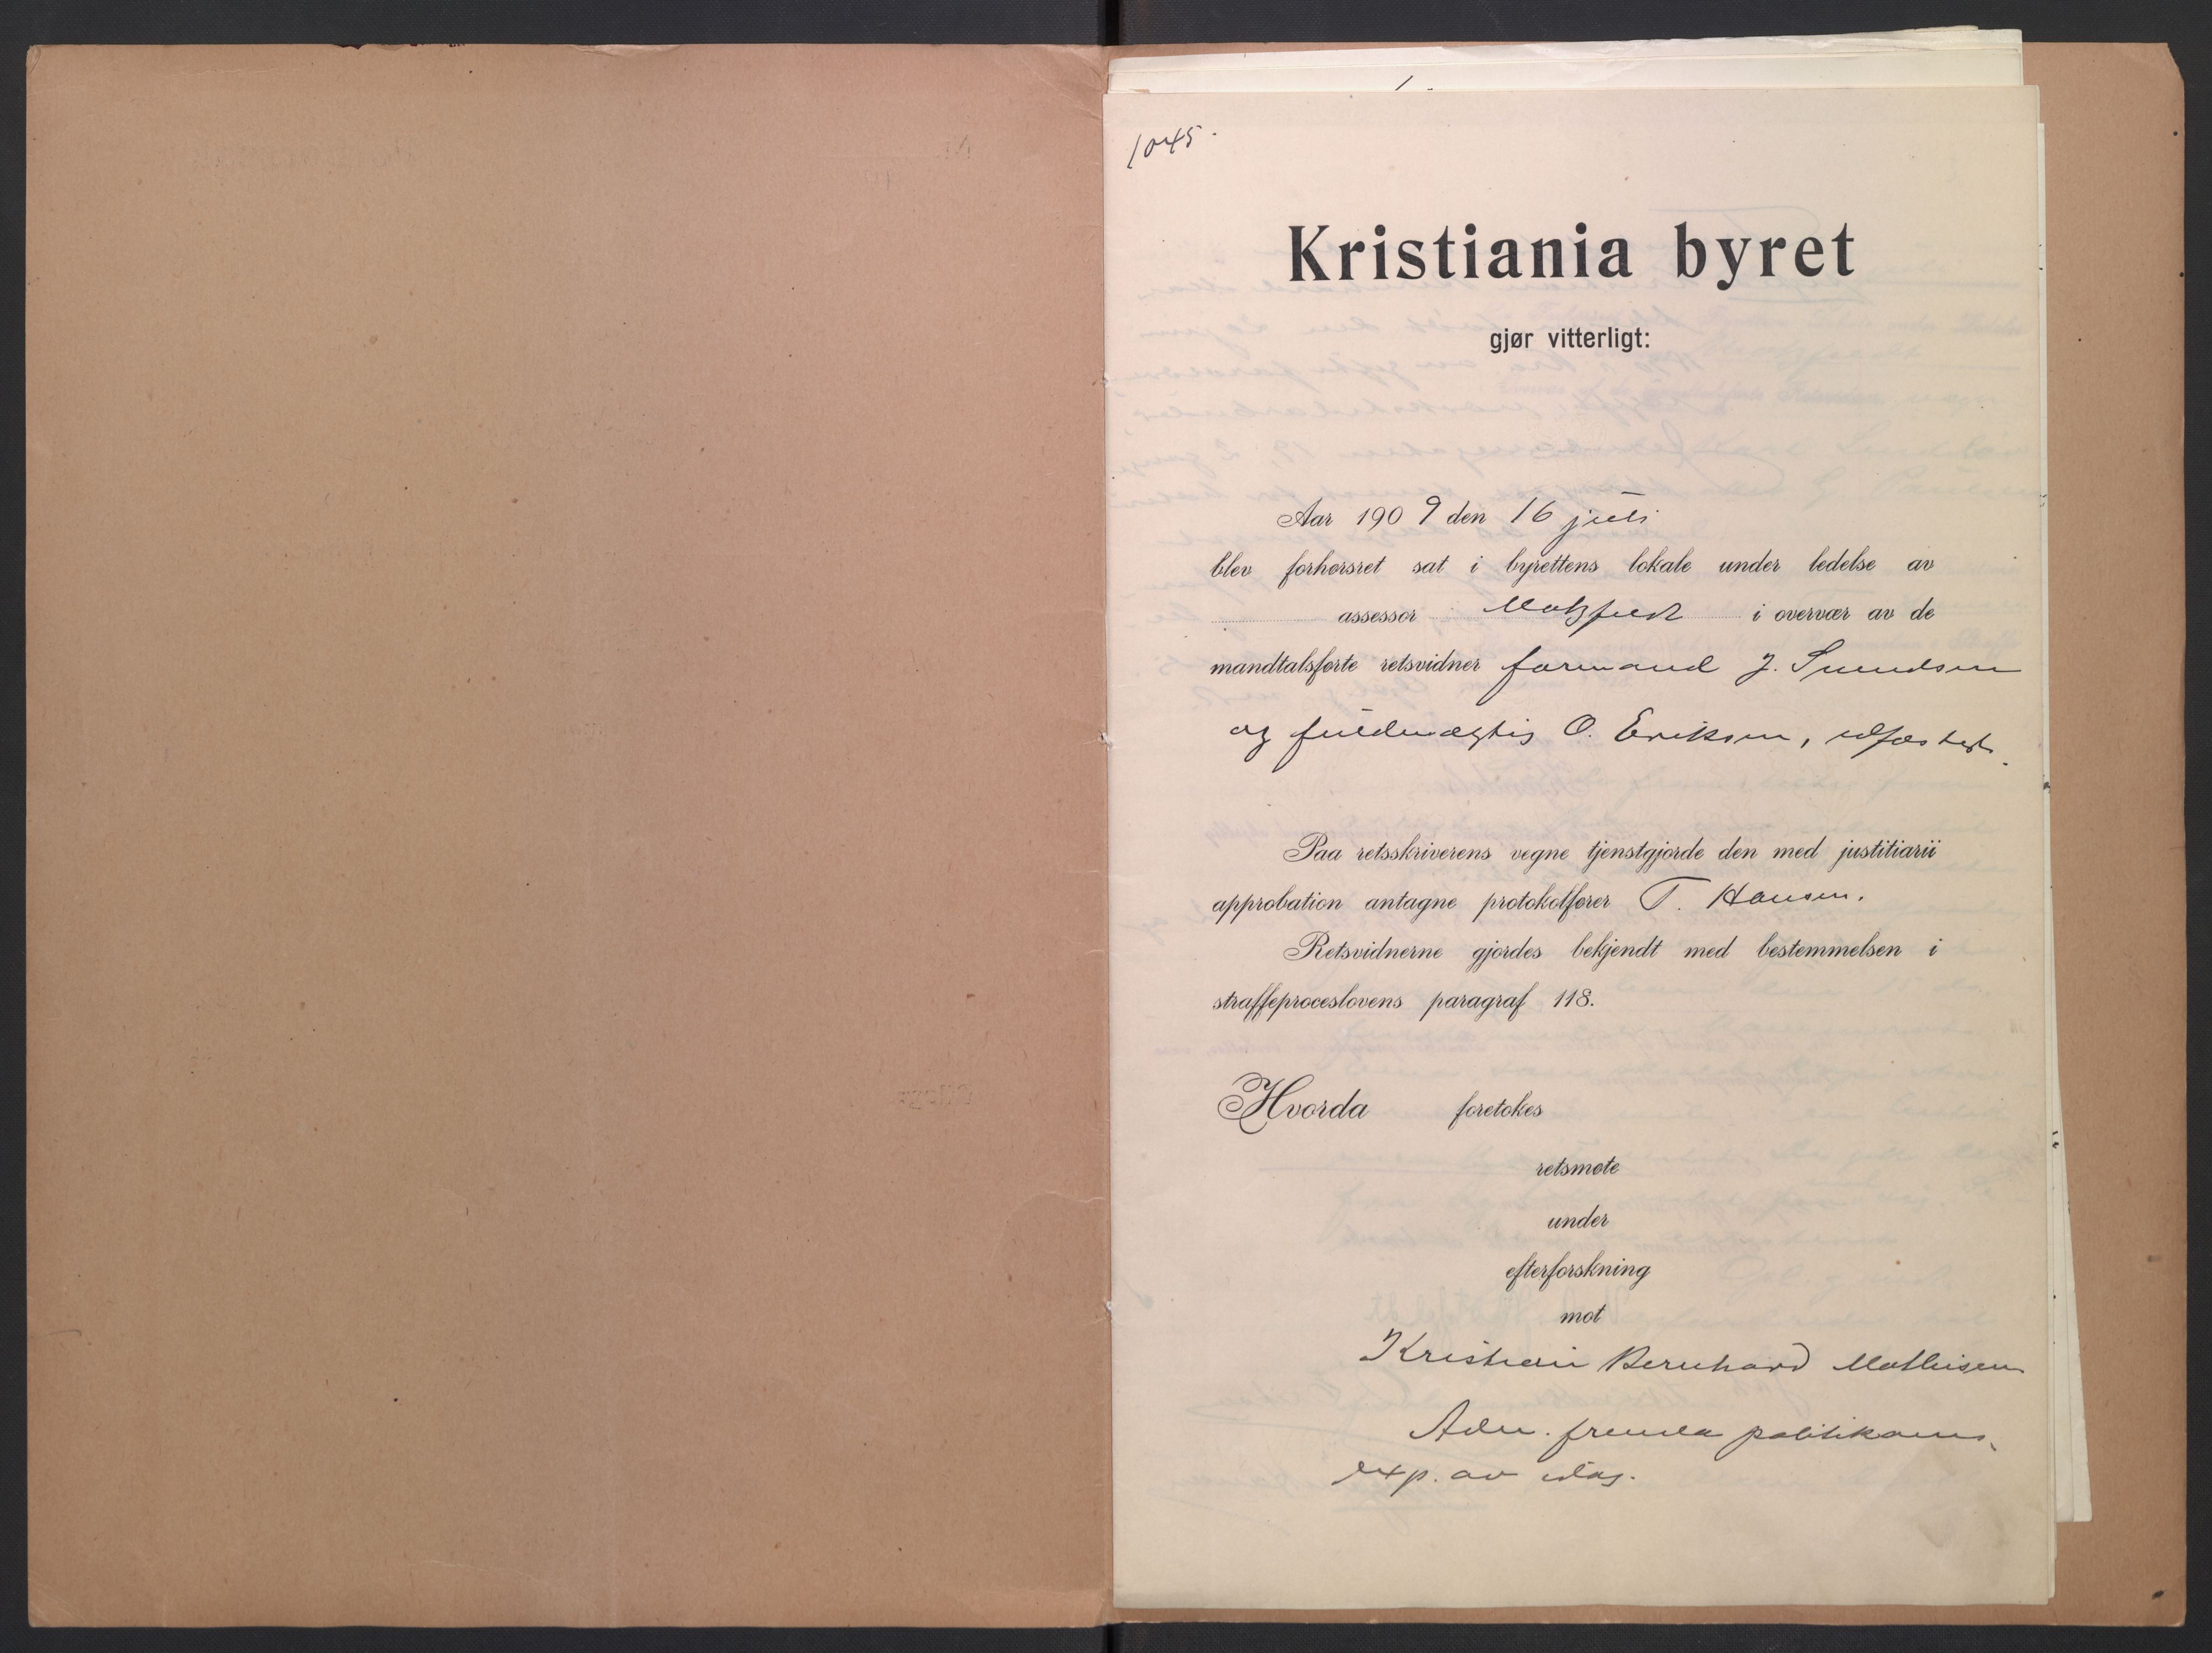 1045.
Kristiania byret
gjør vitterligt:
Aar 1909 den 16 juli
blev forhørsret sat i byrettens lokale under ledelse av
assessor Motzfeldt i overvær av de
mandtalsførte retsvidner formand J. Svendsen
og fuldmægtig O. Eriksen, edfæstet.
Paa retsskriverens vegne tjenstgjorde den med justitiarii
approbation antagne protokolfører T. Hansen.
Retsvidnerne gjordes bekjendt med bestemmelsen i
straffeproceslovens paragraf 118.
Hvorda foretokes
retsmøte
under
efterforskning
mot
Kristian Bernhard Mathisen
Adm. fremla politikam.
exp. av idag.